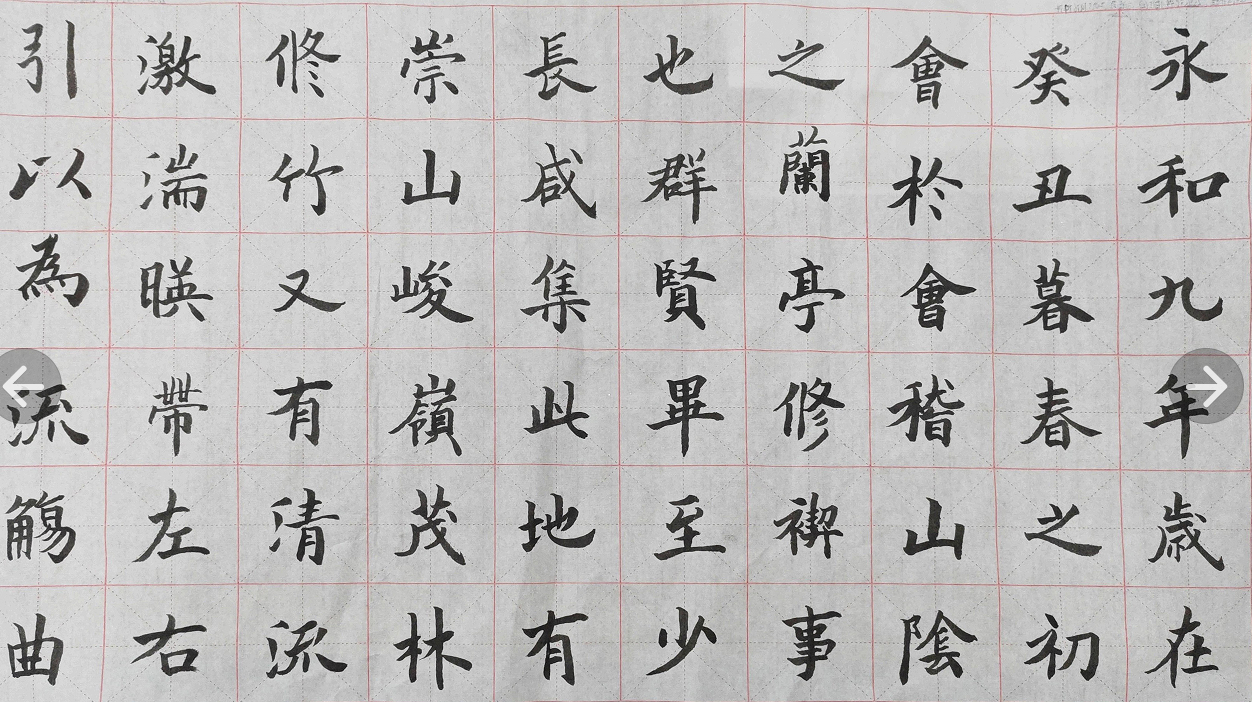 永和九年歳在
癸丑暮春之初
會於會稽山陰
之蘭亭修禊事
也群賢畢至少
長咸集此地有
崇山峻嶺茂林
修竹又有清流
激湍暎帶左右
引以為流觴曲